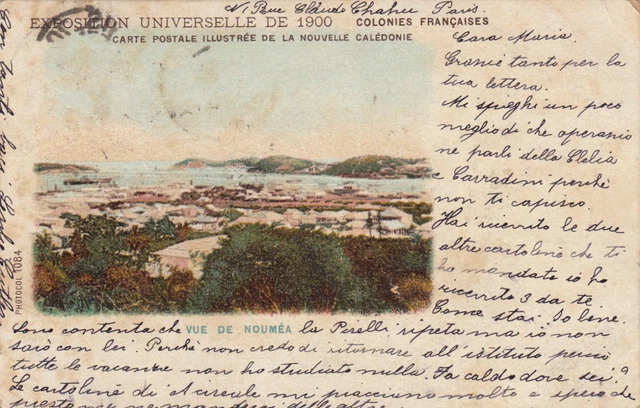 N 1 Rue Claude Chahu Paris.
EXPOSITION UNIVERSELLE DE 1900 COLONIES FRANÇAISES
CARTE POSTALE ILLUSTRÉE DE LA NOUVELLE CALÉDONIE
Cara Maria.
Grazie tanto per la
tua lettera.
Mi spieghi un poco
meglio di che
ne parli della Clelia
e Corradini perchè
non ti capisco.
Hai ricevuto le due
altre cartoline che ti
ho mandato io ho
ricevuto 3 da te.
Come stai. Io bene.
PHOTOCOL 1084
VUE DE NOUMÉA
Sono contenta che la Pirelli ripeta ma io non
sarò con lei. Perchè non credo di ritornare all'istituto perciò
tutte le vacanze non ho studiato nulla. Fa caldo dove sei?
Le cartoline di mi piacciono molto e spero che
presto me ne manderai delle altre.